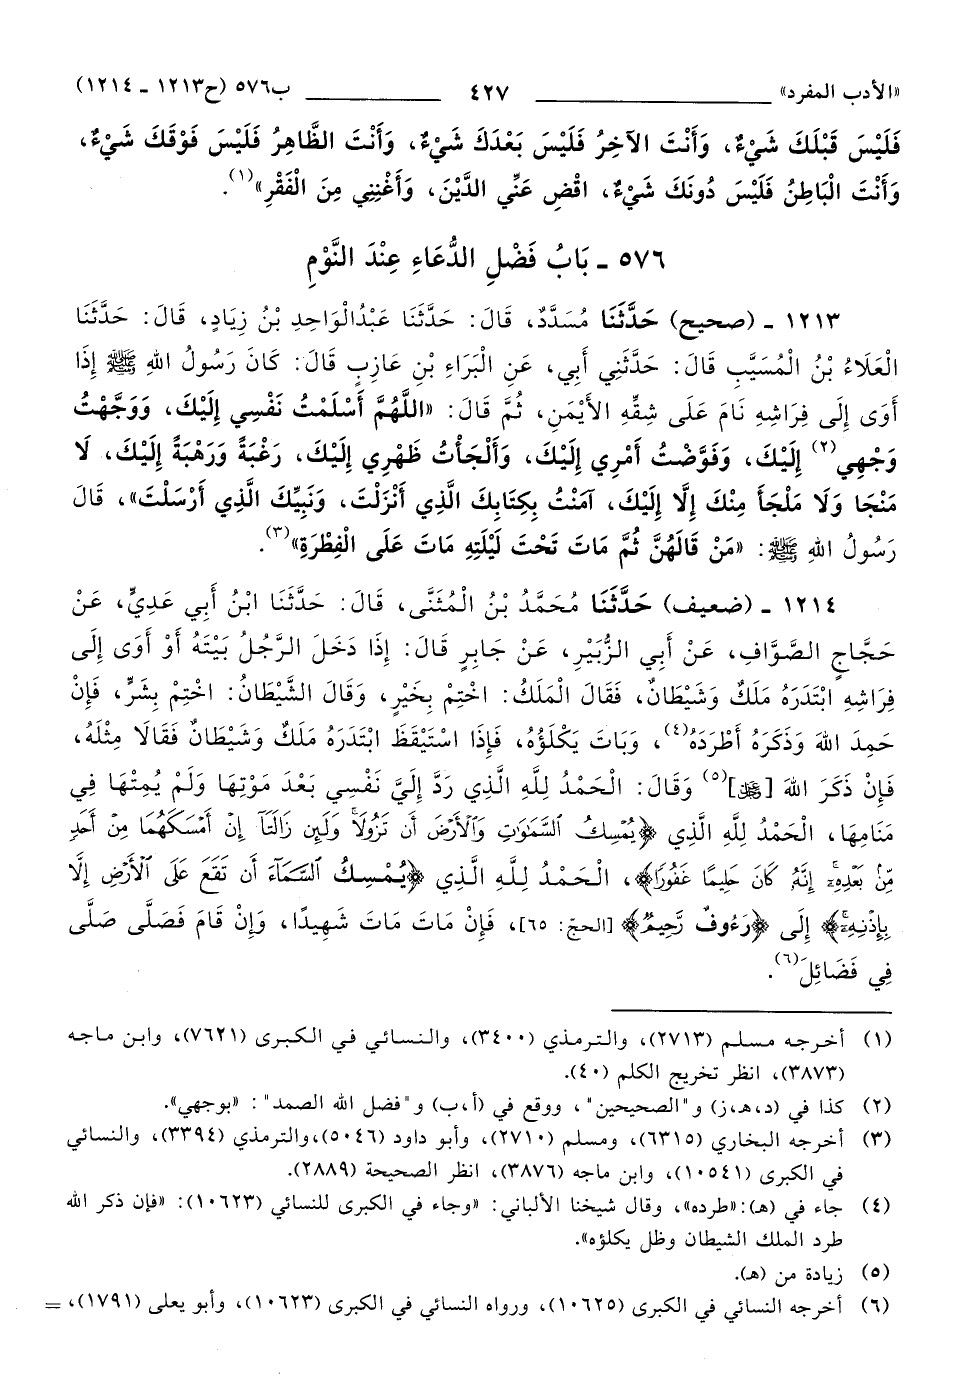 «الأدب المفرد» ٤٢٧ ب٥٧٦ (ح١٢١٣ ـ ١٢١٤)
فَلَيْسَ قَبْلَكَ شَيْءٌ، وَأَنْتَ الآخِرُ فَلَيْسَ بَعْدَكَ شَيْءٌ، وَأَنْتَ الظَّاهِرُ فَلَيْسَ فَوْقَكَ شَيْءٌ،
وَأَنْتَ الْبَاطِنُ فَلَيْسَ دُونَكَ شَيْءٌ، اقْضِ عَنِّي الدَّيْنَ، وَأَغْنِنِي مِنَ الْفَقْرِ»(١).
٥٧٦ ـ بَابُ فَضْلِ الدُّعَاءِ عِنْدَ النَّوْمِ
١٢١٣ ـ (صحيح) حَدَّثَنَا مُسَدَّدٌ، قَالَ: حَدَّثَنَا عَبْدُالْوَاحِدِ بْنُ زِيَادٍ، قَالَ: حَدَّثَنَا
الْعَلَاءُ بْنُ الْمُسَيَّبِ قَالَ: حَدَّثَنِي أَبِي، عَنِ الْبَرَاءِ بْنِ عَازِبٍ قَالَ: كَانَ رَسُولُ اللهِ ﷺ إِذَا
أَوَى إِلَى فِرَاشِهِ نَامَ عَلَى شِقِّهِ الأَيْمَنِ، ثُمَّ قَالَ: «اللَّهُمَّ أَسْلَمْتُ نَفْسِي إِلَيْكَ، وَوَجَّهْتُ
وَجْهِي(٢) إِلَيْكَ، وَفَوَّضْتُ أَمْرِي إِلَيْكَ، وَأَلْجَأْتُ ظَهْرِي إِلَيْكَ، رَغْبَةً وَرَهْبَةً إِلَيْكَ، لَا
مَنْجَا وَلَا مَلْجَأَ مِنْكَ إِلَّا إِلَيْكَ، آمَنْتُ بِكِتَابِكَ الَّذِي أَنْزَلْتَ، وَنَبِيِّكَ الَّذِي أَرْسَلْتَ»، قَالَ
رَسُولُ اللهِ ﷺ: «مَنْ قَالَهُنَّ ثُمَّ مَاتَ تَحْتَ لَيْلَتِهِ مَاتَ عَلَى الْفِطْرَةِ»(٣).
١٢١٤ ـ (ضعيف) حَدَّثَنَا مُحَمَّدُ بْنُ الْمُثَنَّى، قَالَ: حَدَّثَنَا ابْنُ أَبِي عَدِيٍّ، عَنْ
حَجَّاجٍ الصَّوَّافِ، عَنْ أَبِي الزُّبَيْرِ، عَنْ جَابِرٍ قَالَ: إِذَا دَخَلَ الرَّجُلُ بَيْتَهُ أَوْ أَوَى إِلَى
فِرَاشِهِ ابْتَدَرَهُ مَلَكٌ وَشَيْطَانٌ، فَقَالَ الْمَلَكُ: اخْتِمْ بِخَيْرٍ، وَقَالَ الشَّيْطَانُ: اخْتِمْ بِشَرٍّ، فَإِنْ
حَمِدَ اللهَ وَذَكَرَهُ أَطْرَدَهُ(٤)، وَبَاتَ يَكْلَؤُهُ، فَإِذَا اسْتَيْقَظَ ابْتَدَرَهُ مَلَكٌ وَشَيْطَانٌ فَقَالَا مِثْلَهُ،
فَإِنْ ذَكَرَ اللهَ [ﷻ](٥) وَقَالَ: الْحَمْدُ لِلَّهِ الَّذِي رَدَّ إِلَيَّ نَفْسِي بَعْدَ مَوْتِهَا وَلَمْ يُمِتْهَا فِي
مَنَامِهَا، الْحَمْدُ لِلَّهِ الَّذِي ﴿يُمْسِكُ السَّمَٰوَٰتِ وَٱلْأَرْضَ أَن تَزُولَا وَلَئِن زَالَتَآ إِنْ أَمْسَكَهُمَا مِنْ أَحَدٍ
مِّنۢ بَعْدِهِۦٓ إِنَّهُۥ كَانَ حَلِيمًا غَفُورًا﴾، الْحَمْدُ لِلَّهِ الَّذِي ﴿يُمْسِكُ ٱلسَّمَآءَ أَن تَقَعَ عَلَى ٱلْأَرْضِ إِلَّا
بِإِذْنِهِۦٓ﴾ إِلَى ﴿رَءُوفٌ رَّحِيمٌ﴾ [الحجّ: ٦٥]، فَإِنْ مَاتَ مَاتَ شَهِيدًا، وَإِنْ قَامَ فَصَلَّى صَلَّى
فِي فَضَائِلَ(٦).
(١) أخرجه مسلم (٢٧١٣)، والترمذي (٣٤٠٠)، والنسائي في الكبرى (٧٦٢١)، وابن ماجه
(٣٨٧٣)، انظر تخريج الكلم (٤٠).
(٢) كذا في (د،هـ،ز) و"الصحيحين"، ووقع في (أ،ب) و"فضل الله الصمد": «بوجهي».
(٣) أخرجه البخاري (٦٣١٥)، ومسلم (٢٧١٠)، وأبو داود (٥٠٤٦)،والترمذي (٣٣٩٤)، والنسائي
في الكبرى (١٠٥٤١)، وابن ماجه (٣٨٧٦)، انظر الصحيحة (٢٨٨٩).
(٤) جاء في (هـ):«طرده»، وقال شيخنا الألباني: «وجاء في الكبرى للنسائي (١٠٦٢٣): «فإن ذكر الله
طرد الملك الشيطان وظل يكلؤه».
(٥) زيادة من (هـ).
(٦) أخرجه النسائي في الكبرى (١٠٦٢٥)، ورواه النسائي في الكبرى (١٠٦٢٣)، وأبو يعلى (١٧٩١)، =